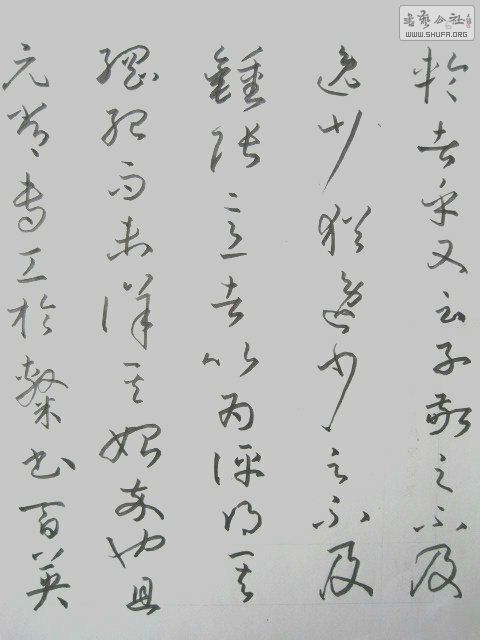 书艺公社
WWW.SHUFA.ORG
輪者乎又云子敬之不及
逸少猶逸少之不及
鍾張意者以為評得其
綱紀而未詳其始卒也且
元常專工於隸書百英